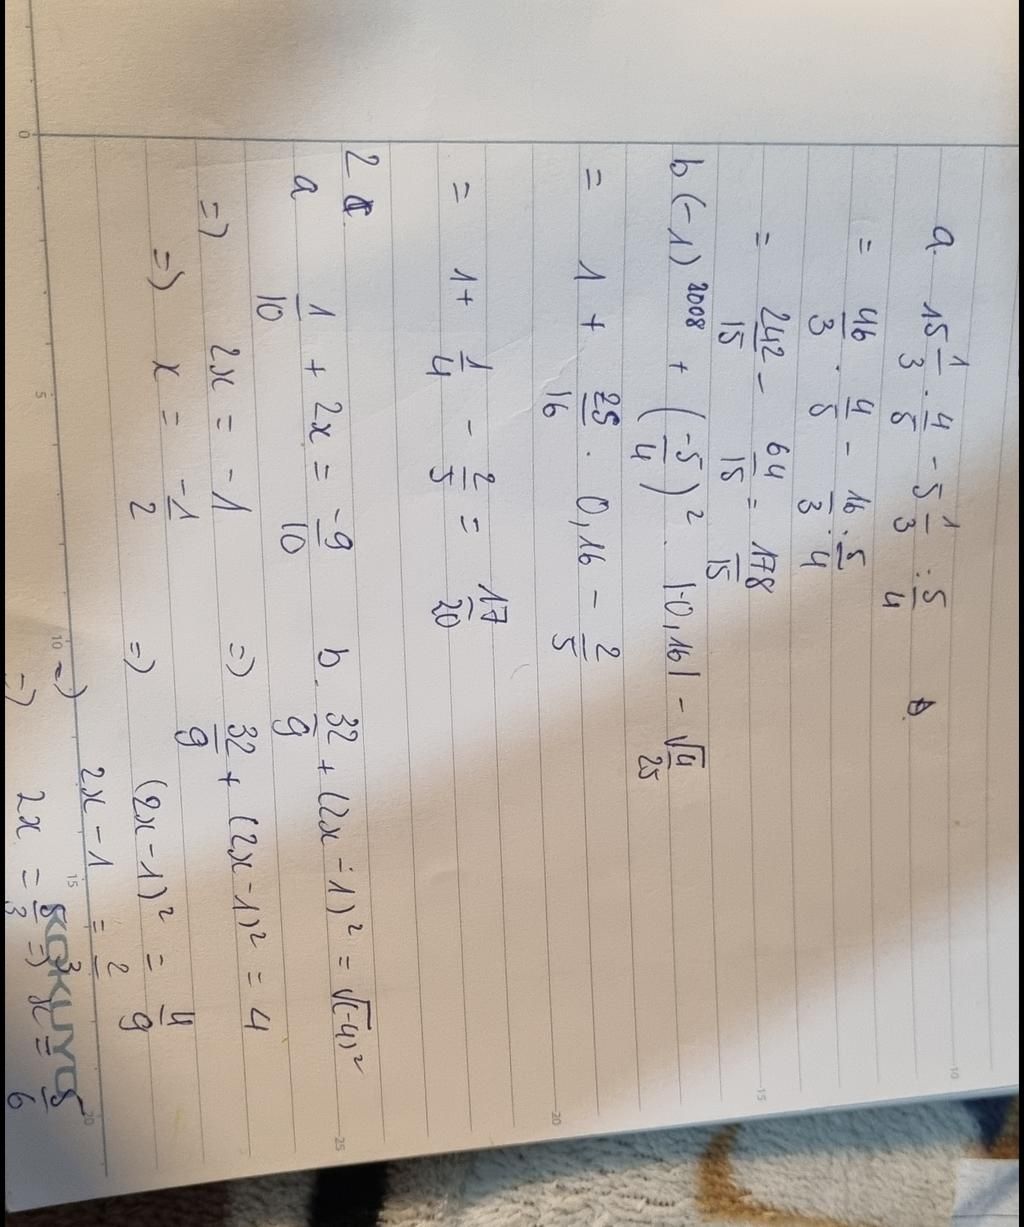 a. 15 1/3 . 4/5 - 5 1/3 : 5/4
= 46/3 . 4/5 - 16/3 : 5/4
b.
= 242/15 - 64/15 = 178/15
b (-1)^2008 + (-5/4)^2 . |-0,16| - √4/25
= 1 + 25/16 . 0,16 - 2/5
= 1 + 1/4 - 2/5 = 17/20
2
a 1/10 + 2x = -9/10
=) 2x = -1
=) x = -1/2
b. 32/9 + (2x - 1)² = √(-4)²
=) 32/9 + (2x - 1)² = 4
=) (2x - 1)² = 4/9
=) 2x - 1 = 2/3
=) 2x = 5/3 =) x = 5/6
KOKUYO
0 5 10 15 20
10 15 20 25